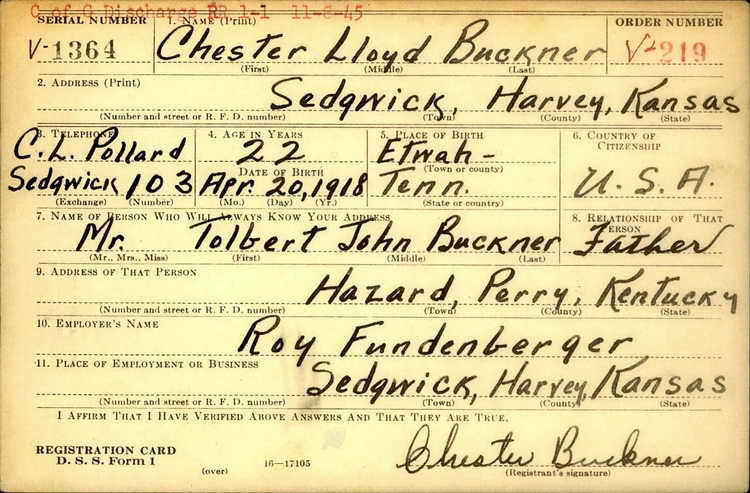 C of G Discharge RR 1-1 11-8-45
SERIAL NUMBER 1. NAME (Print) ORDER NUMBER
V-1364 Chester Lloyd Buckner V-219
(First) (Middle) (Last)
2. ADDRESS (Print)
Sedgwick, Harvey, Kansas
(Number and street or R. F. D. number) (Town) (County) (State)
3. TELEPHONE 4. AGE IN YEARS 5. PLACE OF BIRTH 6. COUNTRY OF CITIZENSHIP
C. L. Pollard 22 Etwah-
DATE OF BIRTH (Town or county)
Sedgwick 103 Apr. 20, 1918 Tenn. U. S. A.
(Exchange) (Number) (Mo.) (Day) (Yr.) (State or country)
7. NAME OF PERSON WHO WILL ALWAYS KNOW YOUR ADDRESS 8. RELATIONSHIP OF THAT PERSON
Mr. Tolbert John Buckner Father
(Mr., Mrs., Miss) (First) (Middle) (Last)
9. ADDRESS OF THAT PERSON
Hazard, Perry, Kentucky
(Number and street or R. F. D. number) (Town) (County) (State)
10. EMPLOYER'S NAME
Roy Fundenberger
11. PLACE OF EMPLOYMENT OR BUSINESS
Sedgwick, Harvey, Kansas
(Number and street or R. F. D. number) (Town) (County) (State)
I AFFIRM THAT I HAVE VERIFIED ABOVE ANSWERS AND THAT THEY ARE TRUE.
REGISTRATION CARD
D. S. S. Form 1 Chester Buckner
(over) 16-17105 (Registrant's signature)